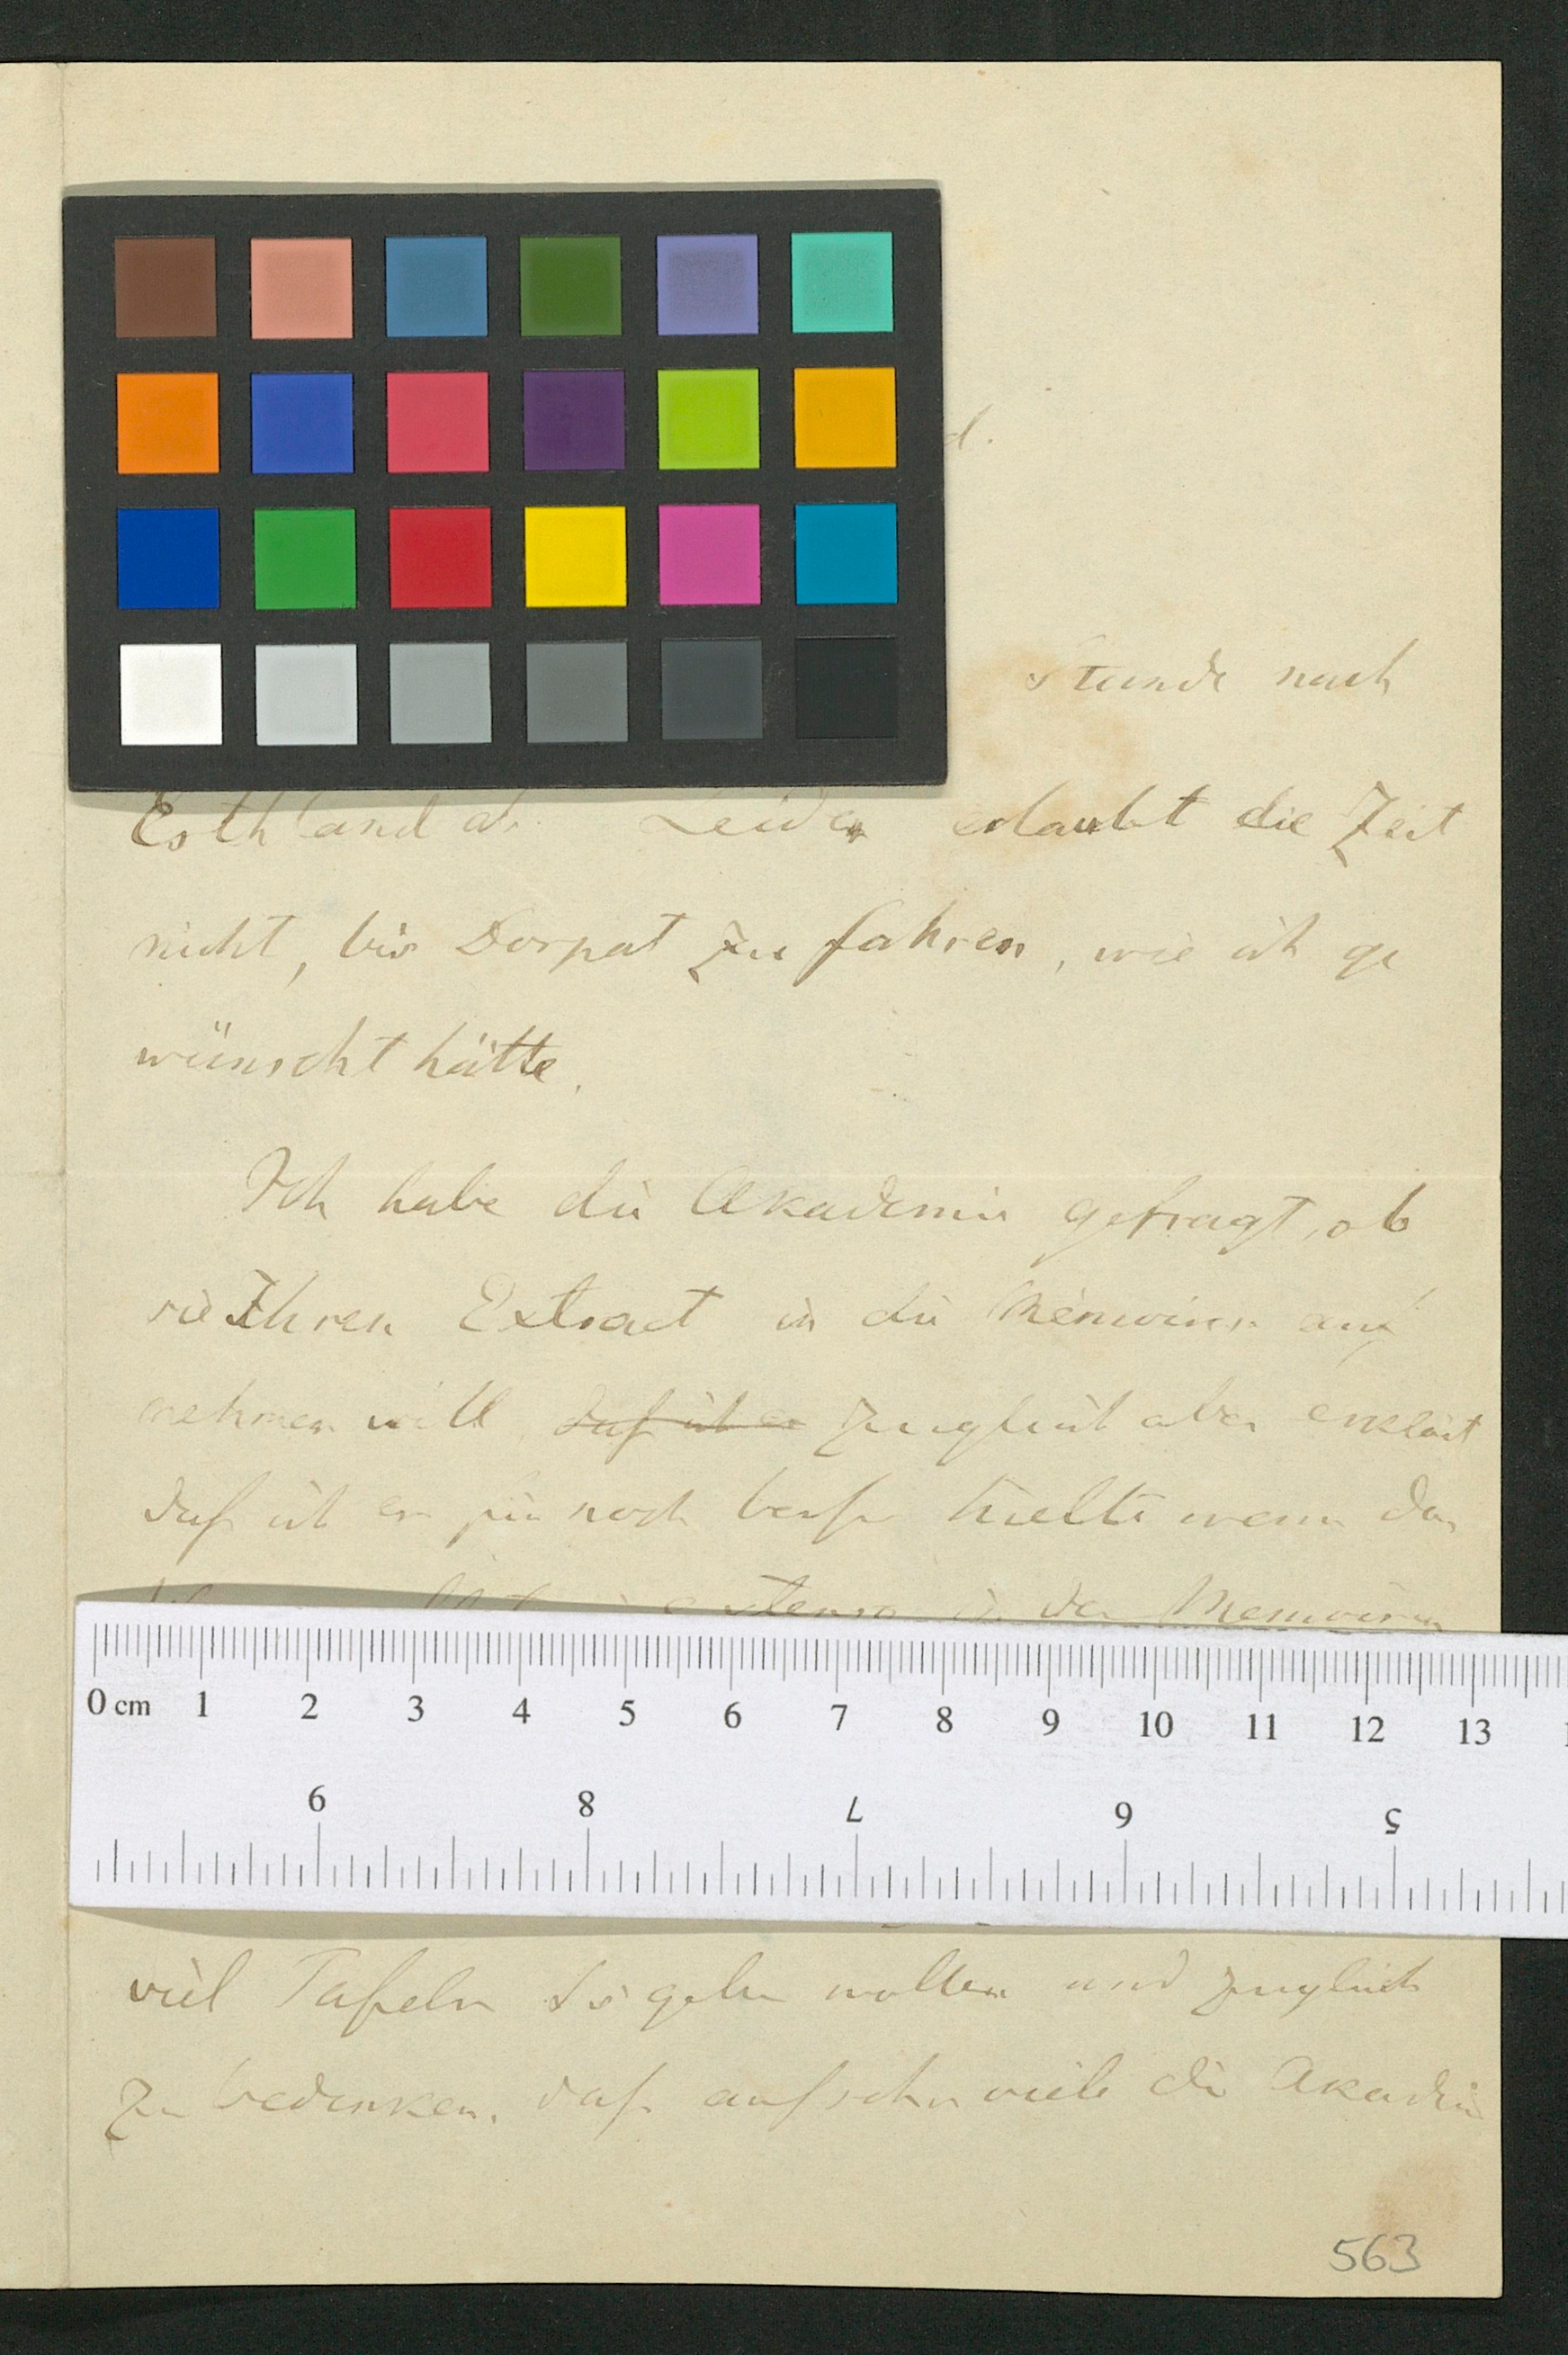 d.
Stunde nach
Esthland ab. Leider erlaubt die Zeit
nicht, bis Dorpat zu fahren, wie ich ge
wünscht hätte.
Ich habe die Akademie gefragt, ob
sie Ihren Extract in die Mémoiren auf
nehmen will daß ich es zugleich aber erklärt
daß ich es für noch besser hielte wenn das
extenso in den Memoiren
0 cm 1 2 3 4 5 6 7 8 9 10 11 12 13
9 8 7 6 5
viel Tafeln Sie geben wollen und zugleich
zu bedenken, daß auf sehr viele die Akademie
563